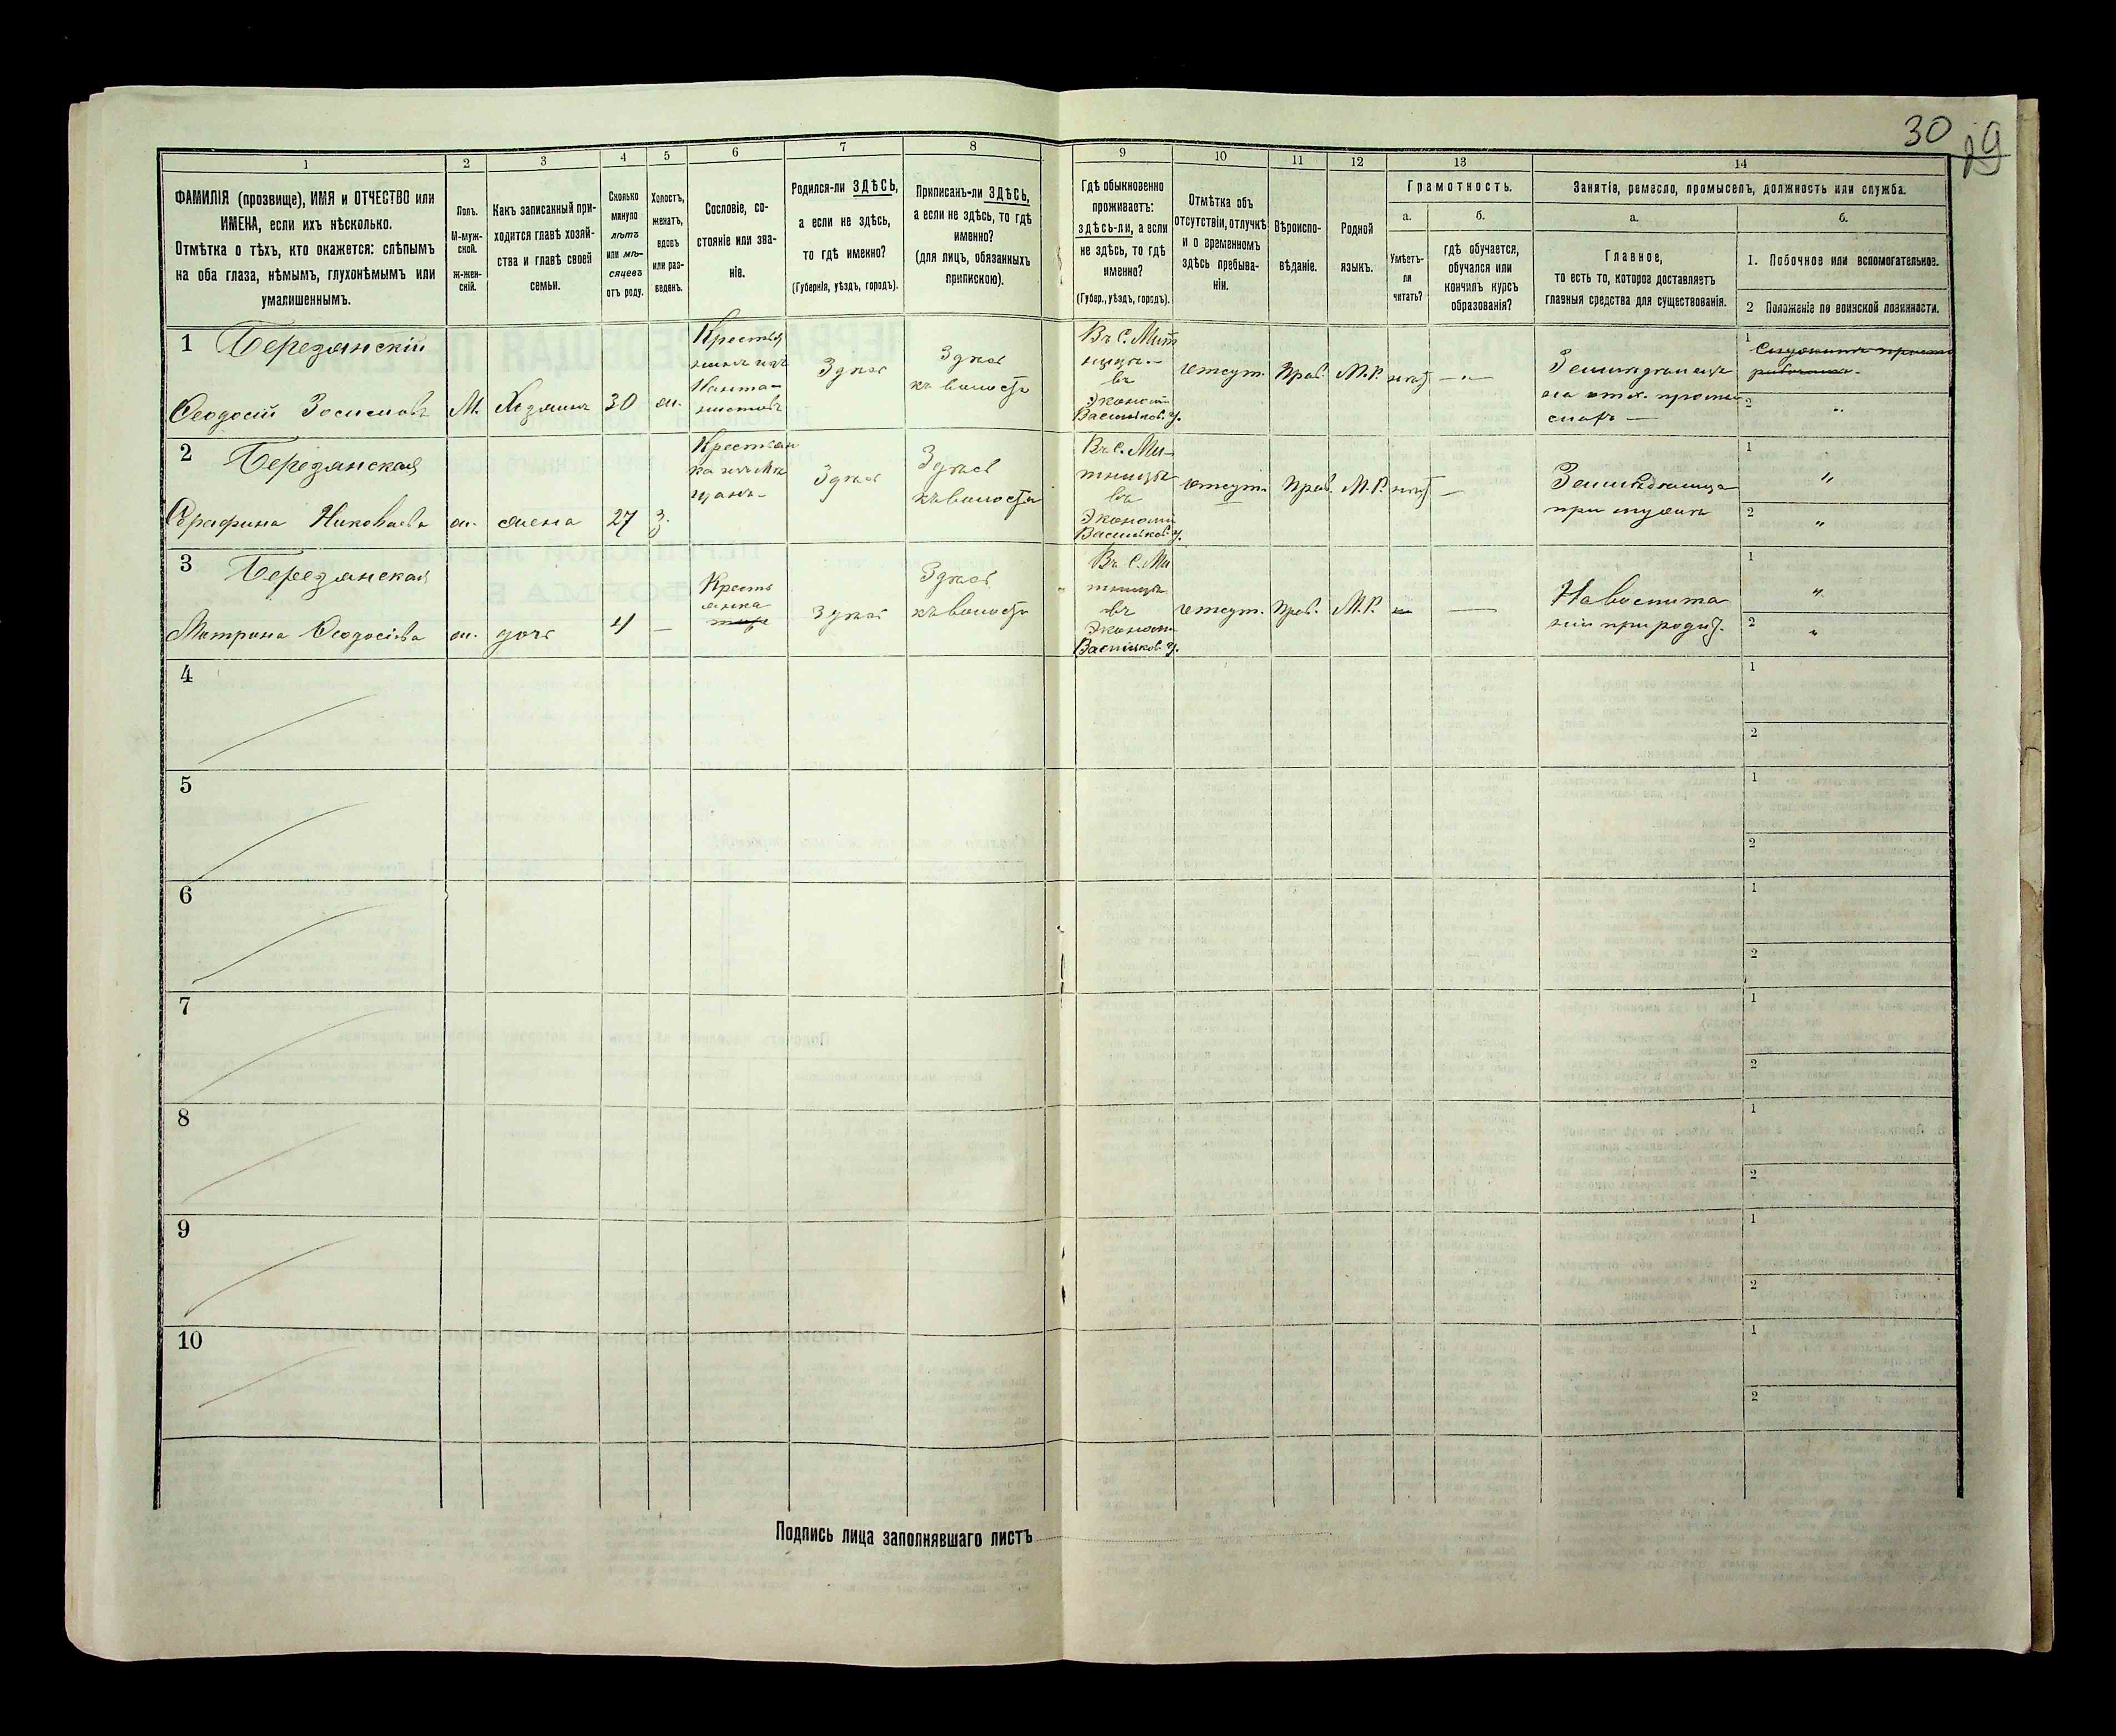 30
29
1
2
3
4
5
6
7
8
9
10
11
12
13
14
ФАМИЛІЯ (прозвище), ИМЯ и ОТЧЕСТВО или
ИМЕНА, если ихъ нѣсколько.
Отмѣтка о тѣхъ, кто окажется: слѣпымъ
на оба глаза, нѣмымъ, глухонѣмымъ или
умалишеннымъ.
Полъ.
М-муж-
ской.
ж-жен-
скій.
Какъ записанный при-
ходится главѣ хозяй-
ства и главѣ своей
семьи.
Сколько
минуло
лѣтъ
или мѣ-
сяцевъ
отъ роду.
Холостъ,
женатъ,
вдовъ
или раз-
веденъ.
Сословіе, со-
стояніе или зва-
ніе.
Родился-ли ЗДѢСЬ,
а если не здѣсь,
то гдѣ именно?
(Губернія, уѣздъ, городъ).
Приписанъ-ли ЗДѢСЬ,
а если не здѣсь, то гдѣ
именно?
(для лицъ, обязанныхъ
припискою).
Гдѣ обыкновенно
проживаетъ:
здѣсь-ли, а если
не здѣсь, то гдѣ
именно?
(Губер., уѣздъ, городъ).
Отмѣтка объ
отсутствіи, отлучкѣ
и о временномъ
здѣсь пребыва-
ніи.
Вѣроиспо-
вѣданіе.
Родной
языкъ.
Грамотность.
а.
Умѣетъ-
ли
читать?
б.
гдѣ обучается,
обучался или
кончилъ курсъ
образованія?
Занятіе, ремесло, промыселъ, должность или служба.
а.
Главное,
то есть то, которое доставляетъ
главныя средства для существованія.
б.
1. Побочное или вспомогательное.
2 Положеніе по воинской повинности.
1 Березянскій
Ѳеодосій Зосимовъ
М.
Хозяинъ
30
ж.
Крестья
нинъ изъ
Здѣсь
Здѣсь
къ волости
Въ С. Мыт
ницы
въ
Эконом
Васильков. у.
отсут.
Прав.
М.Р.
нѣт
—„—
1
2
„
2 Березянская
Николаева
ж.
жена
27
З.
Крестьян
ка
Здѣсь
Здѣсь
къ волости
Въ С. Мы
тницы
въ
Экономі
Васильков. у.
отсут.
Прав.
М.Р.
нѣт
—
Земледѣлица
при мужѣ
1
„
2
„
3 Березянская
Матрона Ѳеодосіева
ж.
дочь
4
—
Кресть
янка
Здѣсь
Здѣсь
къ волости
Въ С. Мы
тницы
въ
Экономі
Васильков. у.
отсут.
Прав.
М.Р.
—
На воспита
ніи при род.
1
„
2
„
4
1
2
5
1
2
6
1
2
7
1
2
8
1
2
9
1
2
10
1
2
Подпись лица заполнявшаго листъ